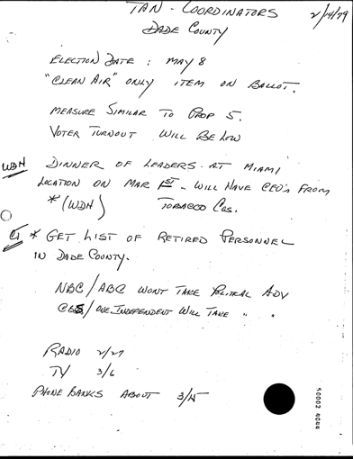 TAN - COORDINATORS 2/14/79
DADE COUNTY
ELECTION DATE : MAY 8
"CLEAN AIR" ONLY ITEM ON BALLOT.
MEASURE SIMILAR TO PROP 5.
VOTER TURNOUT WILL BE LOW
WDH DINNER OF LEADERS AT MIAMI
LOCATION ON MAR - WILL HAVE CEO'S FROM
* (WDH) TOBACCO COS.
* GET LIST OF RETIRED PERSONNEL
IN DADE COUNTY.
NBC/ABC WONT TAKE POLITICAL ADV
CBS/ONE INDEPENDENT WILL TAKE " "
RADIO 2/27
TV 3/6
PHONE BANKS ABOUT 3/15
50002 4044